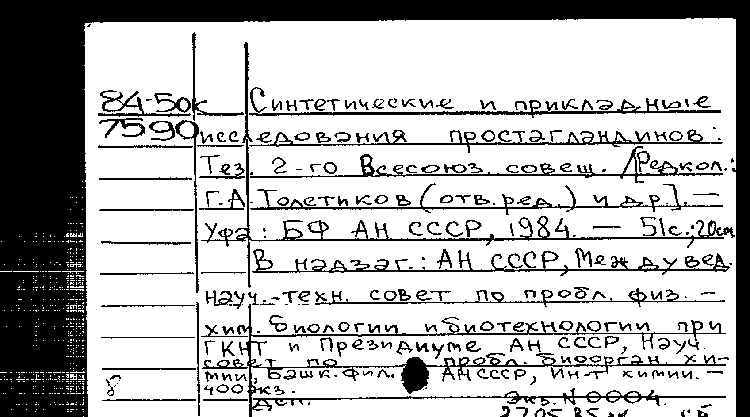 84-5ок Синтетические и прикладные
7590 исследования простагландинов:
Тез. 2-го Всесоюз. совещ. /[Редкол.:
Г.А. Толстиков (отв.ред.) и др]. —
Уфа: БФ АН СССР, 1984. — 51с.; 20см
В надзаг.: АН СССР, Междувед.
науч.-техн. совет по пробл. физ. -
хим. биологии и биотехнологии при
ГКНТ и Президиуме АН СССР, Науч.
совет по пробл. биоорган. хи-
мии, Башк. фил. АН СССР, Ин-т химии. —
8 400экз.
Деп. Экз. N 0004.
27.05.85